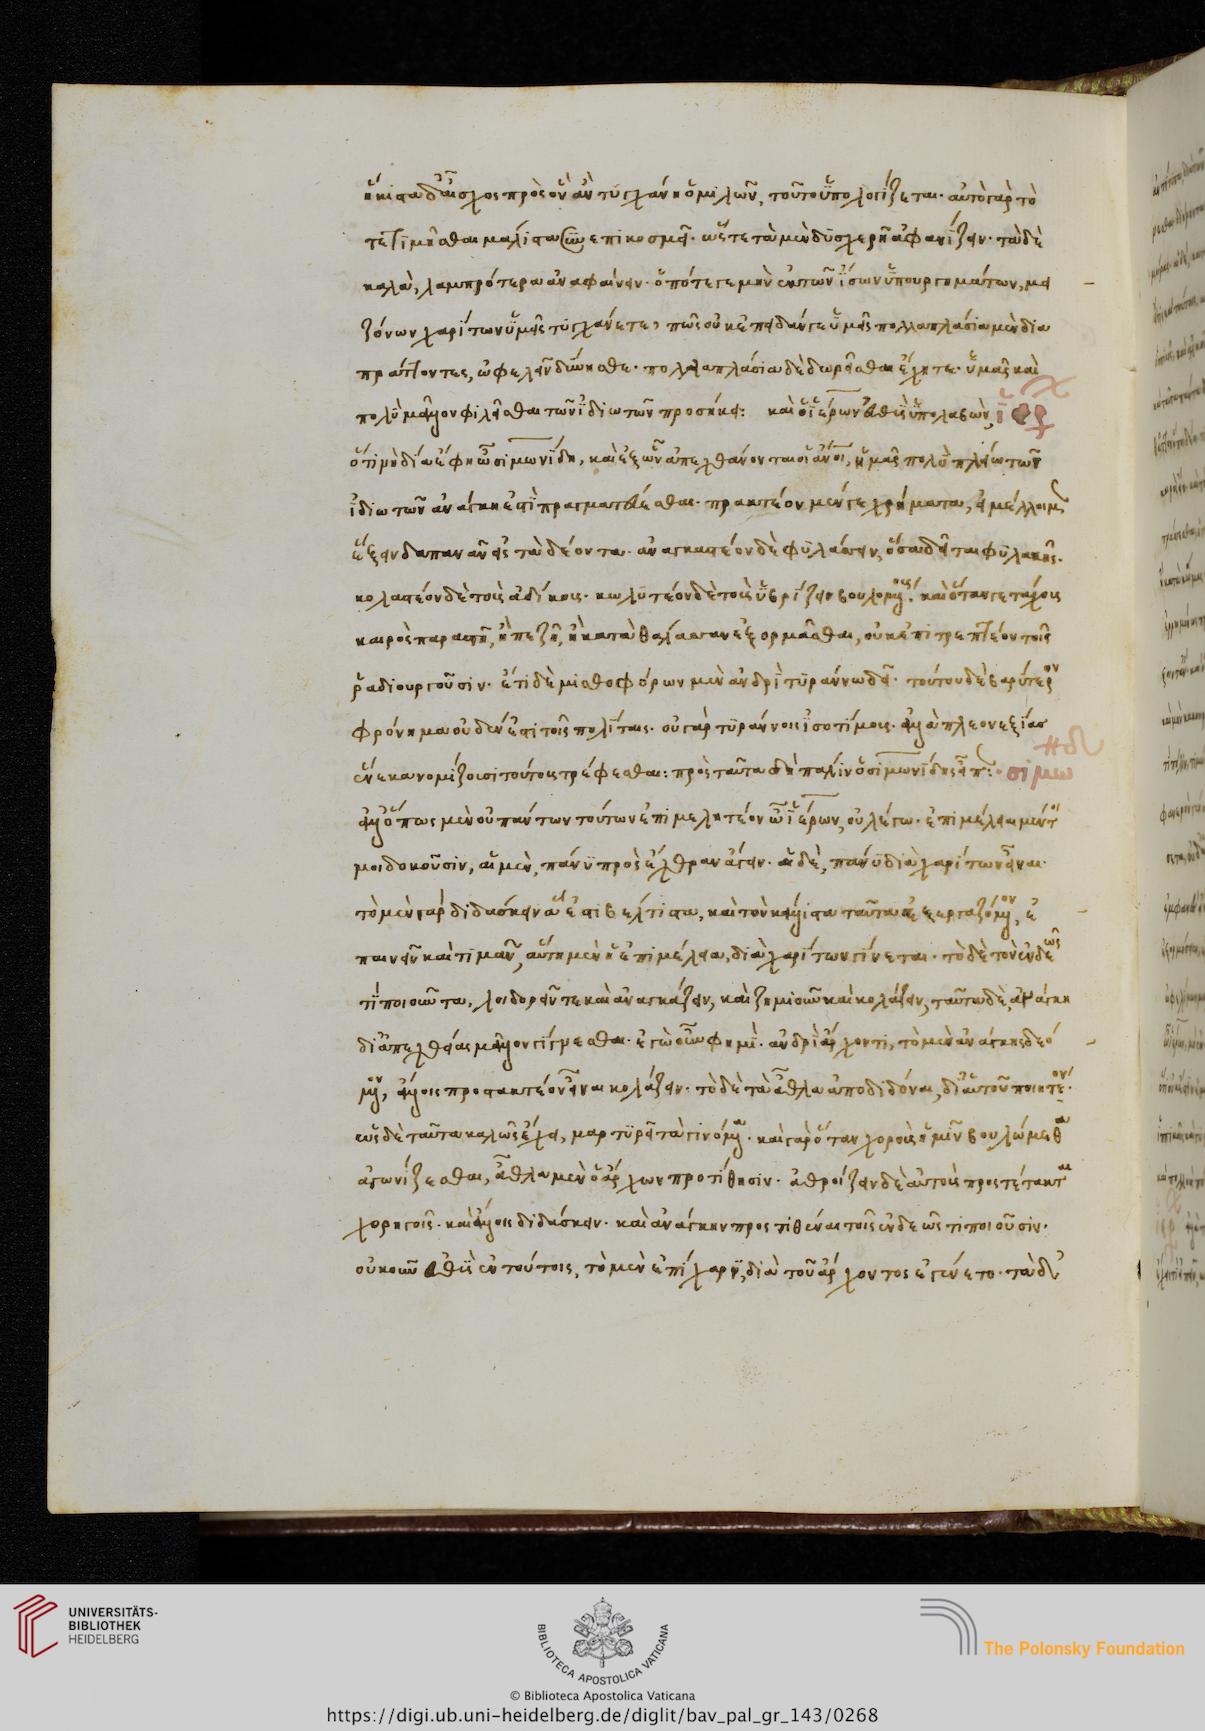 ἥκιστα δ᾽ αἶσχος πρὸς ὃν ἂν τυγχάνῃ ὁμιλῶν, τοῦτο ὑπολογίζεται· αὐτὸ γὰρ τὸ
τετιμῆσθαι μάλιστα συνεπικοσμεῖ· ὥστε τὰ μὲν δυσχερῆ ἀφανίζειν· τὰ δὲ
καλὰ, λαμπρότερα ἀναφαίνειν· ὁπότε γε μὴν ἐκ τῶν ἴσων ὑπουργημάτων, μει
ζόνων χαρίτων ὑμεῖς τυγχάνετε, πῶς οὐκ ἐπειδάν γε ὑμεῖς πολλαπλάσια μὲν δια
πράττοντες, ὠφελεῖν δύνησθε· πολλαπλάσια δὲ δωρεῖσθαι ἔχητε· ὑμᾶς καὶ
πολὺ μᾶλλον φιλεῖσθαι τῶν ἰδιωτῶν προσήκει: καὶ ὁ ἱέρων εὐθὺς ὑπολαβὼν, ἱερ
ὅτι μὴ δία ἔφη ὦ σιμωνίδη, καὶ ἐξ ὧν ἀπεχθάνονται οἱ ἄνοι, ἡμᾶς πολὺ πλείω τῶν
ἰδιωτῶν ἀνάγκη ἐστὶ πραγματεύεσθαι· πρακτέον μέν γε χρήματα, εἰ μέλλοιμεν
ἕξειν δαπανᾶν εἰς τὰ δέοντα· ἀναγκαστέον δὲ φυλάσσειν, ὅσα δεῖται φυλακῆς·
κολαστέον δὲ τοὺς ἀδίκους· κωλυτέον δὲ τοὺς ὑβρίζειν βουλομένους· καὶ ὅταν γε τάχους
καιρὸς παραστῇ, ἢ πεζῇ, ἢ κατὰ θάλασσαν ἐξορμᾶσθαι, οὐκ ἐπιτρεπτέον τοῖς
ῥᾳδιουργοῦσιν· ἔτι δὲ μισθοφόρων μὲν ἀνδρὶ τυράννω δεῖ· τούτου δὲ βαρύτερον
φρόνημα οὐδέν ἐστι τοῖς πολίταις· οὐ γὰρ τυράννοις ἰσοτίμους· ἀλλὰ πλεονεξίας
ἕνεκα νομίζουσι τούτους τρέφεσθαι: πρὸς ταῦτα δὴ πάλιν ὁ σιμωνίδης εἶπεν: σιμω
ἀλλ᾽ ὅπως μὲν οὐ πάντων τούτων ἐπιμελητέον ὦ ἱέρων, οὐ λέγω· ἐπιμέλειαι μέντοι
μοι δοκοῦσιν, αἱ μὲν, πάνυ πρὸς ἔχθραν ἄγειν· αἱ δὲ, πάνυ διὰ χαρίτων εἶναι·
τὸ μὲν γὰρ διδάσκειν ἅ ἐστι βέλτιστα, καὶ τὸν κάλλιστα ταῦτα ἐξεργαζόμενον, ἐ
παινεῖν καὶ τιμᾶν, αὕτη μὲν ἡ ἐπιμέλεια, διὰ χαρίτων γίνεται· τὸ δὲ τὸν ἐνδεῶς
τὶ ποιοῦντα, λοιδορεῖν τε καὶ ἀναγκάζειν, καὶ ζημιοῦν καὶ κολάζειν, ταῦτα δὲ, ἀνάγκη
δι᾽ ἀπεχθείας μᾶλλον γίγνεσθαι· ἐγὼ οὖν φημὶ· ἀνδρὶ ἄρχοντι, τὸ μὲν ἀνάγκης δεό
μενον, ἄλλοις προστακτέον εἶναι κολάζειν· τὸ δὲ τὰ ἆθλα ἀποδιδόναι, δι᾽ αὑτοῦ ποιητέον·
ὡς δὲ ταῦτα καλῶς ἔχει, μαρτυρεῖ τὰ γινόμενα· καὶ γὰρ ὅταν χοροὺς ἡμῖν βουλώμεθα
ἀγωνίζεσθαι, ἆθλα μὲν ὁ ἄρχων προτίθησιν· ἀθροίζειν δὲ αὐτοὺς προστέτακται
χορηγοῖς· καὶ ἄλλοις διδάσκειν· καὶ ἀνάγκην προστιθέναι τοῖς ἐνδεῶς τι ποιοῦσιν·
οὐκοῦν εὐθὺς ἐν τούτοις, τὸ μὲν ἐπίχαρι, διὰ τοῦ ἄρχοντος ἐγένετο· τὰ δ᾽
UNIVERSITÄTS-
BIBLIOTHEK
HEIDELBERG
BIBLIOTECA APOSTOLICA VATICANA
The Polonsky Foundation
© Biblioteca Apostolica Vaticana
https://digi.ub.uni-heidelberg.de/diglit/bav_pal_gr_143/0268